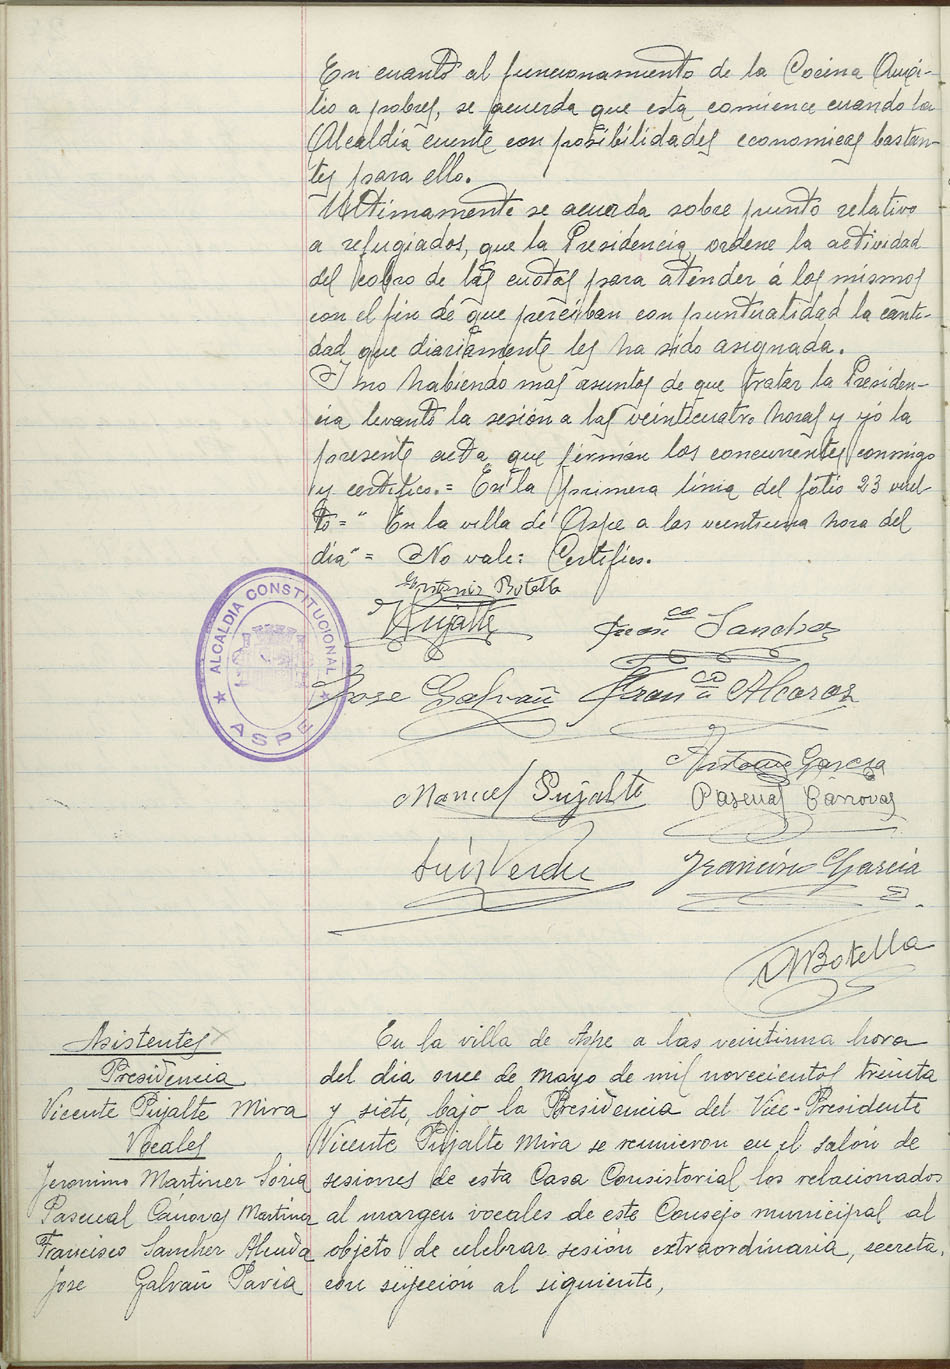 En cuanto al funcionamiento de la Cocina Auxi-
lio a pobres, se acuerda que esta comience cuando la
Alcaldia cuente con posibilidades economicas bastan-
tes para ello.
Ultimamente se acuerda sobre punto relativo
a refugiados, que la Presidencia ordene la actividad
del cobro de las cuotas para atender á los mismos
con el fin de que perciban con puntualidad la canti-
dad que diariamente les ha sido asignada.
Y no habiendo mas asuntos de que tratar la Presiden-
cia levantó la sesión a las veinticuatro horas y yó la
presente acta, que firman los concurrentes conmigo
y certifico.= En la primera linia del folio 23 vuel
to =" En la villa de Aspe a las veintiuna hora del
dia"= No vale: Certifico.
Antonio Botella
Pujalte
Franco Sanchez
ALCALDIA CONSTITUCIONAL
ASPE
Jose Galvañ
Franco Alcaraz
Antonio Garcia
Manuel Pujalte
Pascual Cánovas
Luis Verdu
Francisco Garcia
A Botella
Asistentes
Presidencia
Vicente Pujalte Mira
Vocales
Jeronimo Martinez Soria
Pascual Cánovas Martinez
Francisco Sanchez Almida
Jose Galvañ Pavia
En la villa de Aspe a las veintiuna hora
del dia once de mayo de mil novecientos treinta
y siete, bajo la Presidencia del Vice-Presidente
Vicente Pujalte Mira se reunieron en el salón de
sesiones de esta Casa Consistorial los relacionados
al margen vocales de este Consejo municipal al
objeto de celebrar sesión extraordinaria, secreta,
con sujeción al siguiente,